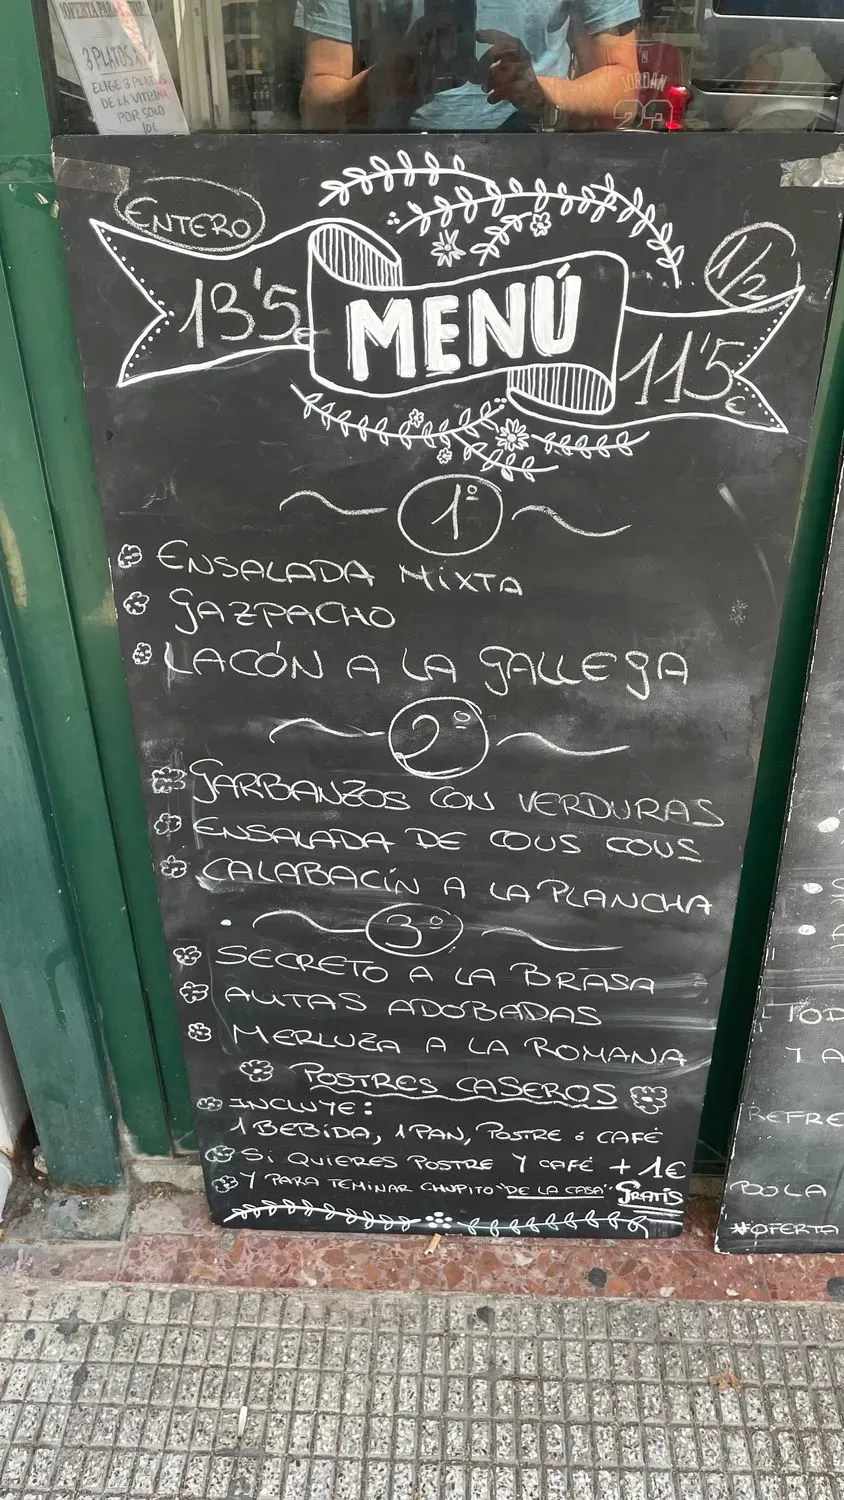 ¡OFERTA PARA
3 PLATOS X
ELIGE 3 PLATOS
DE LA VITRINA
POR SOLO
10€
JORDAN
23
ENTERO
1/2
13'5€
MENÚ
11'5€
1º
ENSALADA MIXTA
GAZPACHO
LACÓN A LA GALLEGA
2º
GARBANZOS CON VERDURAS
ENSALADA DE COUS COUS
CALABACÍN A LA PLANCHA
3º
SECRETO A LA BRASA
ALITAS ADOBADAS
MERLUZA A LA ROMANA
POSTRES CASEROS
INCLUYE:
1 BEBIDA, 1 PAN, POSTRE ó CAFÉ
SI QUIERES POSTRE Y CAFÉ +1€
Y PARA TEMINAR CHUPITO "DE LA CASA" GRATIS
TOD
Y A
REFRE
#OFERTA